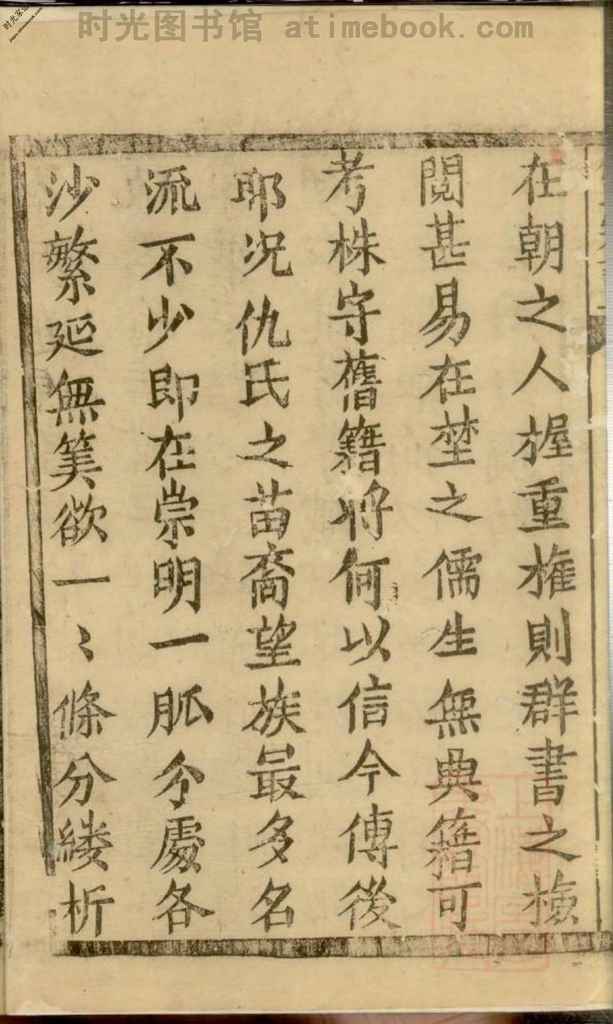 时光图书馆 atimebook.com
在朝之人握重權則群書之檢
閱甚易在埜之儒生無典籍可
考株守舊籍將何以信今傳後
耶况仇氏之苗裔望族最多名
流不少即在崇明一脈分處各
沙繁延無筭欲一〻條分縷析